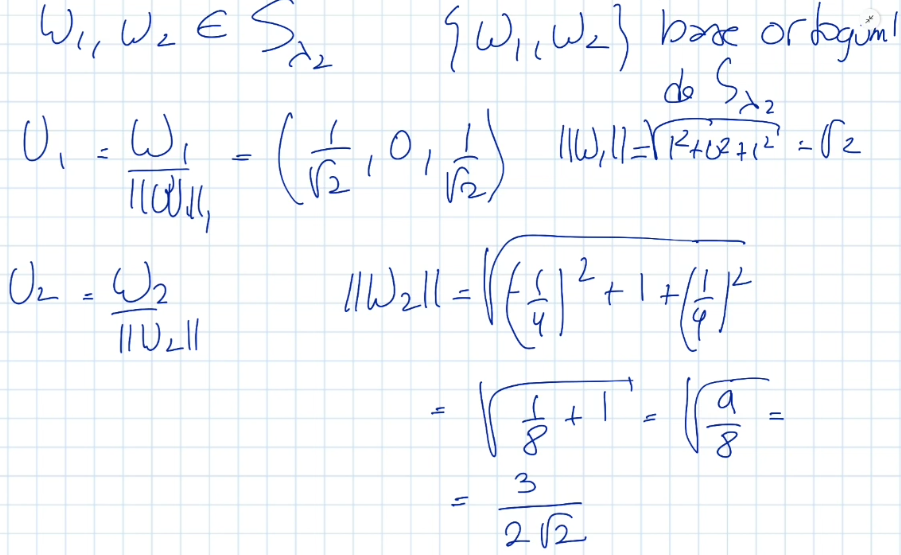 W₁, W₂ ∈ S_λ₂ {W₁, W₂} base ortogonal
de S_λ₂
U₁ = W₁/||W||₁ = (1/√2, 0, 1/√2) ||W₁|| = √(1²+0²+1²) = √2
U₂ = W₂/||W₂|| ||W₂|| = √((-1/4)² + 1 + (1/4)²)
= √(1/8 + 1) = √(9/8) =
= 3/(2√2)